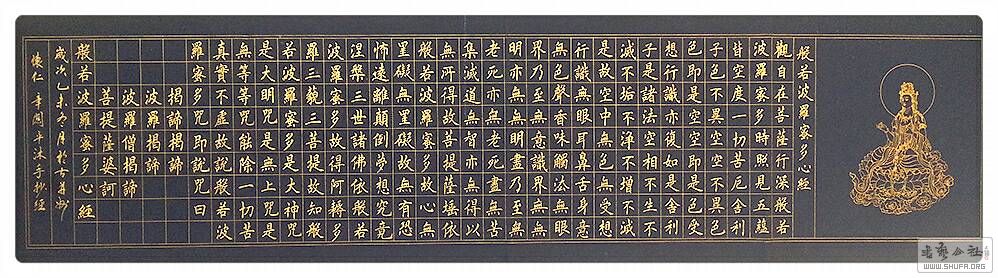 般若波羅蜜多心經
觀自在菩薩行深般若
波羅蜜多時照見五蘊
皆空度一切苦厄舍利
子色不異空空不異色
色即是空空即是色受
想行識亦復如是舍利
子是諸法空相不生不
滅不垢不淨不增不減
是故空中無色無受想
行識無眼耳鼻舌身意
無色聲香味觸法無眼
界乃至無意識界無無
明亦無無明盡乃至無
老死亦無老死盡無苦
集滅道無智亦無得以
無所得故菩提薩埵依
般若波羅蜜多故心無
罣礙無罣礙故無有恐
怖遠離顛倒夢想究竟
涅槃三世諸佛依般若
波羅蜜多故得阿耨多
羅三藐三菩提故知般
若波羅蜜多是大神咒
是大明咒是無上咒是
無等等咒能除一切苦
真實不虛故說般若波
羅蜜多咒即說咒曰
揭諦揭諦
波羅揭諦
波羅僧揭諦
菩提薩婆訶
般若波羅蜜多心經
歲次乙未月於古
懷仁沐手抄經
书艺公社
WWW.SHUFA.ORG